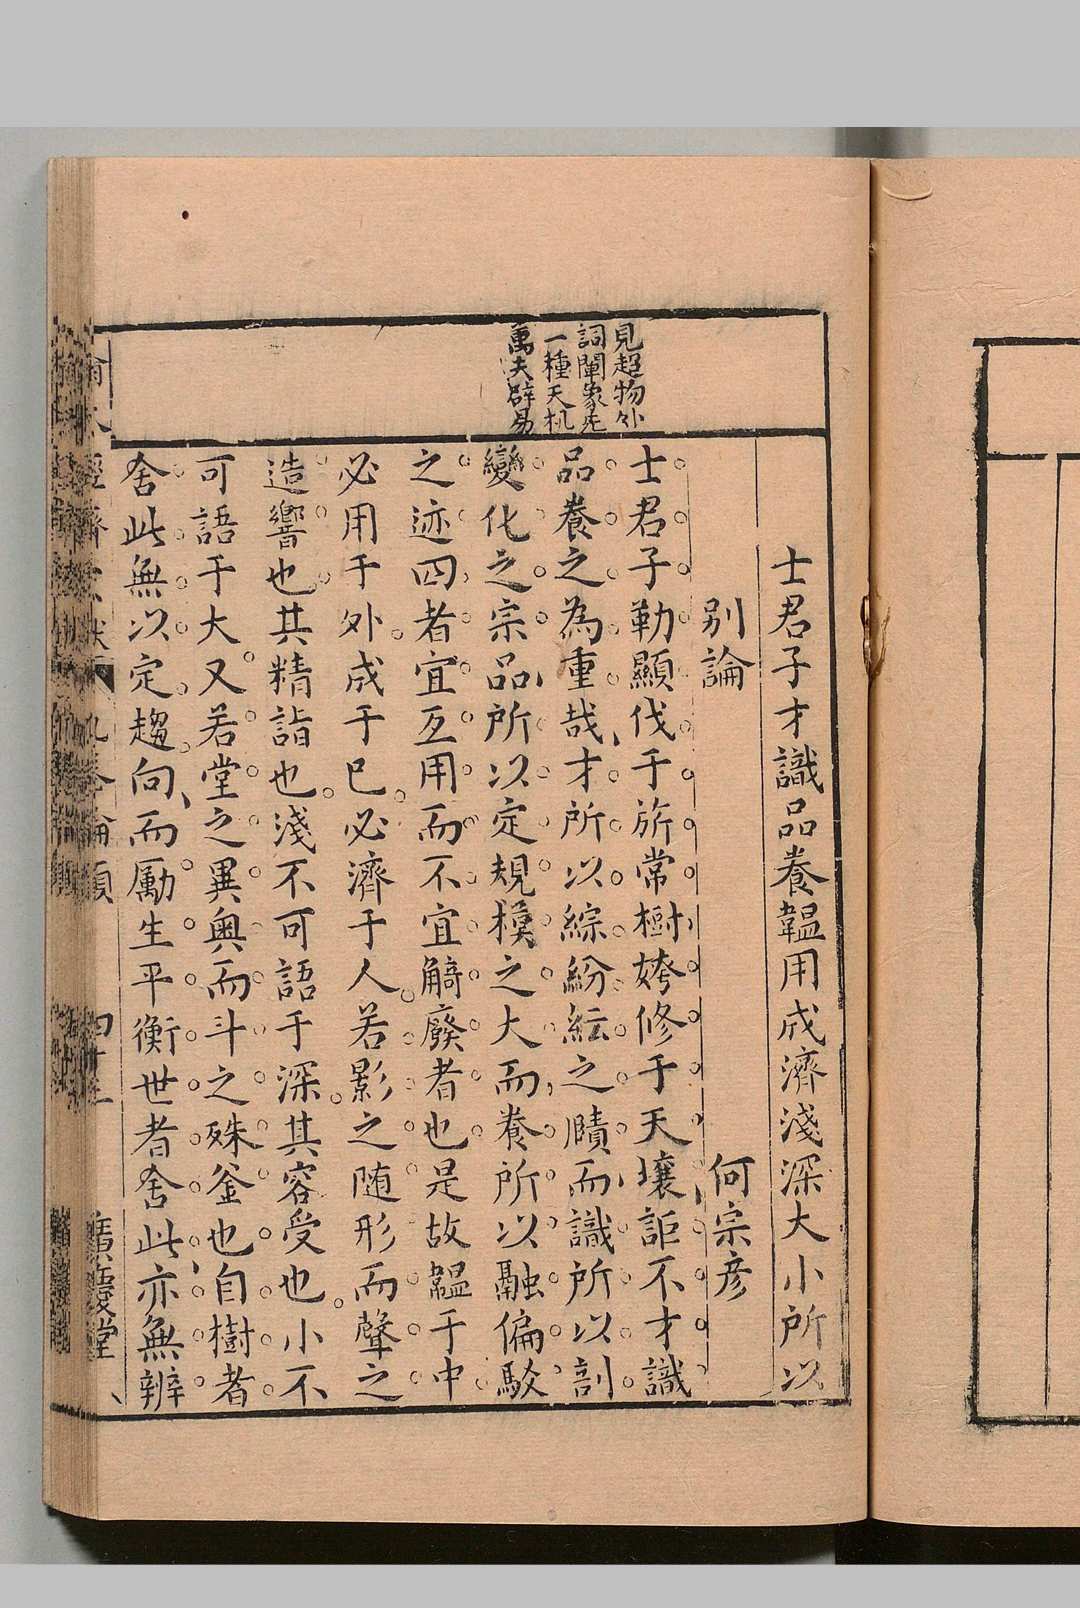 見超物外
詞闡象先
一種天机
萬夫辟易
士君子才識品養韞用成濟淺深大小所以
別論
何宗彥
士君子勒顯伐于旂常樹姱修于天壤詎不才識
品養之為重哉才所以綜紛紜之賾而識所以剖
變化之宗品所以定規模之大而養所以融偏駁
之迹四者宜互用而不宜觭廢者也是故韞于中
必用于外成于已必濟于人若影之随形而聲之
造響也其精詣也淺不可語于深其容受也小不
可語于大又若堂之異奥而斗之殊釜也自樹者
舍此無以定趨向而勵生平衡世者舍此亦無辨
九卷論類
廣慶堂